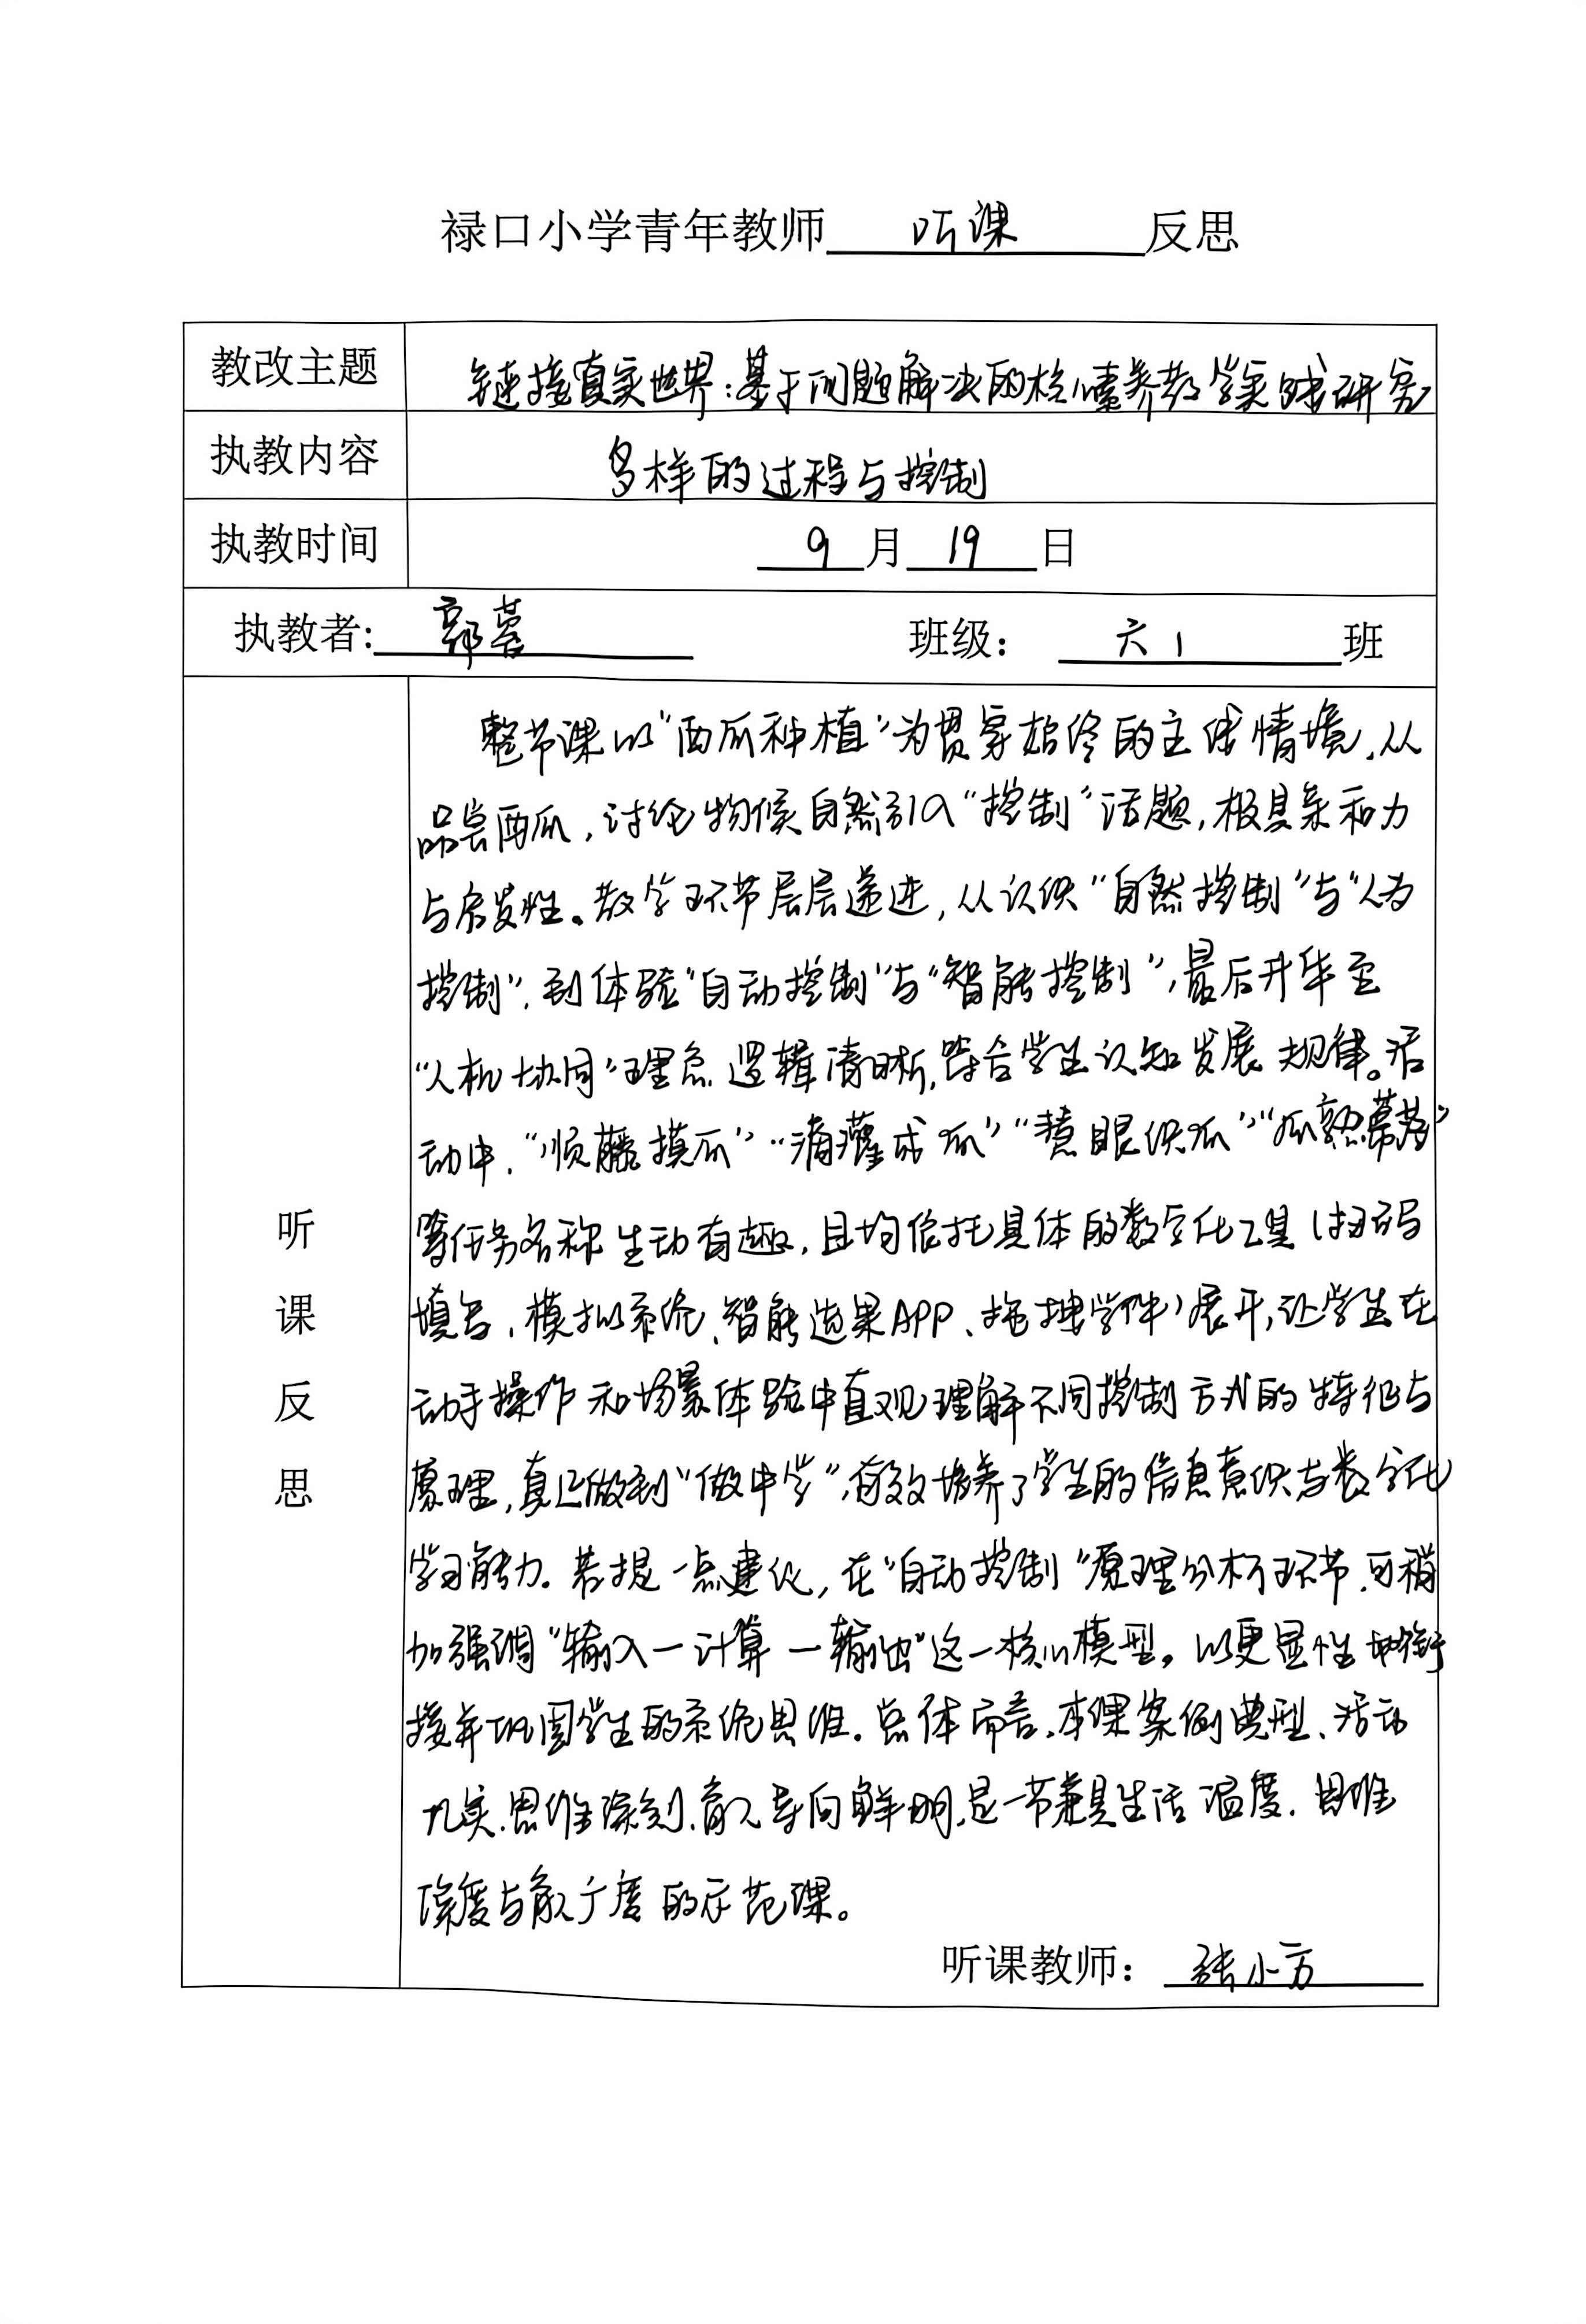 禄口小学青年教师 听课 反思
教改主题 链接真实世界：基于问题解决的核心素养教学实践研究
执教内容 多样的过程与控制
执教时间 9 月 19 日
执教者: 郭蓉 班级： 六1 班
听课反思
整节课以“西瓜种植”为贯穿始终的主线情境，从
品尝西瓜，讨论物候自然引入“控制”话题，极具亲和力
与启发性。教学环节层层递进，从认识“自然控制”与“人为
控制”，到体验“自动控制”与“智能控制”，最后升华至
“人机协同”理念 逻辑清晰，符合学生认知发展规律。活
动中，“顺藤摸瓜”“滴灌成瓜”“慧眼识瓜”“瓜熟蒂落”
等任务名称生动有趣，且均依托具体的数字化工具（扫码
填写、模拟系统、智能选果APP、拖拽学件）展开，让学生在
动手操作和场景体验中直观理解不同控制方式的特征与
原理，真正做到“做中学”，有效培养了学生的信息意识与数字化
学习能力。若提一点建议，在“自动控制”原理分析环节，可稍
加强调“输入—计算—输出”这一核心模型，以更显性地衔
接并巩固学生的系统思维。总体而言，本课案例典型、活动
扎实、思维深刻、育人导向鲜明，是一节兼具生活温度、思维
深度与育人广度的示范课。
听课教师： 张小方